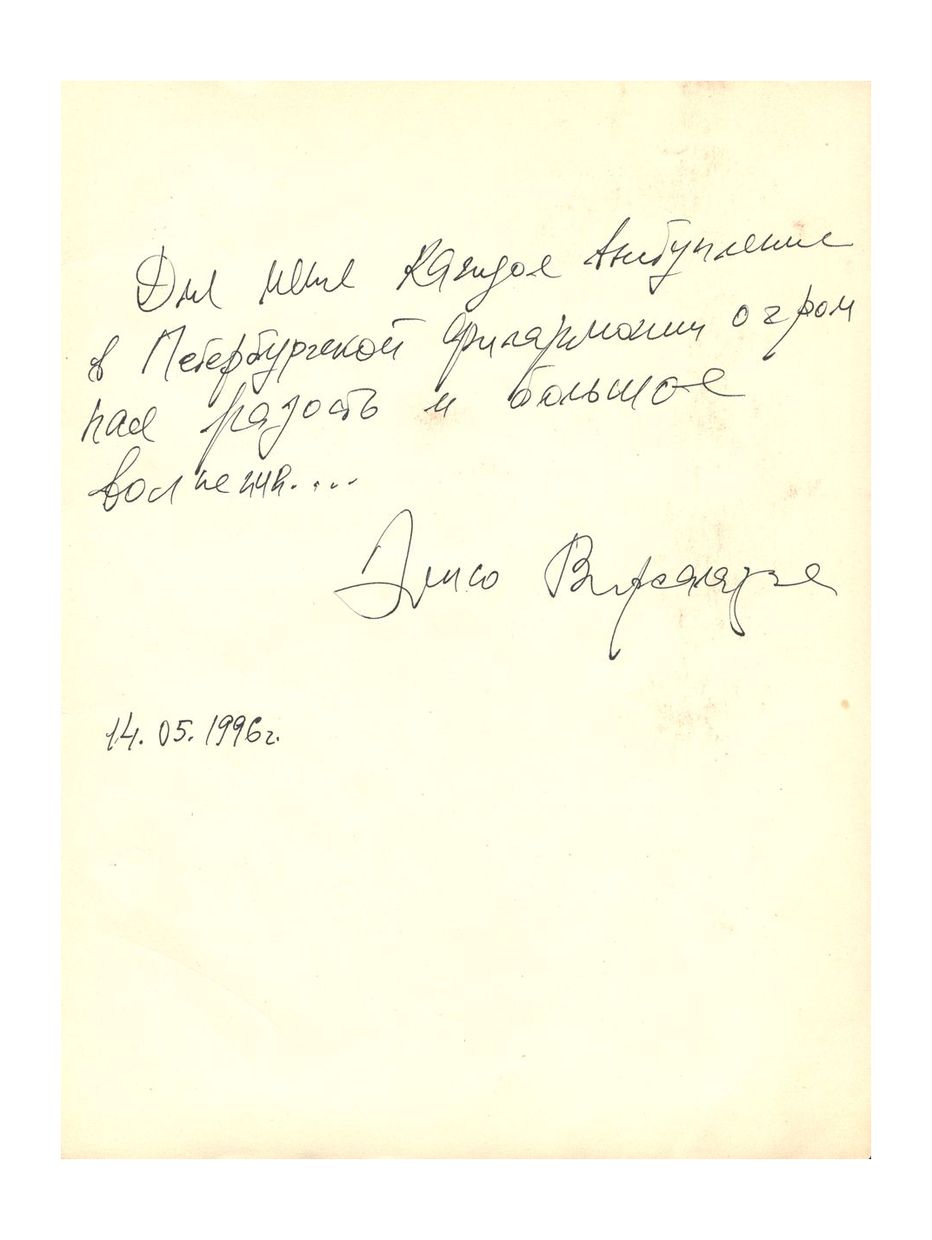 Для меня каждое выступление
в Петербургской филармонии огром
ная радость и большое
волнение....
Элисо Вирсаладзе
14.05.1996г.